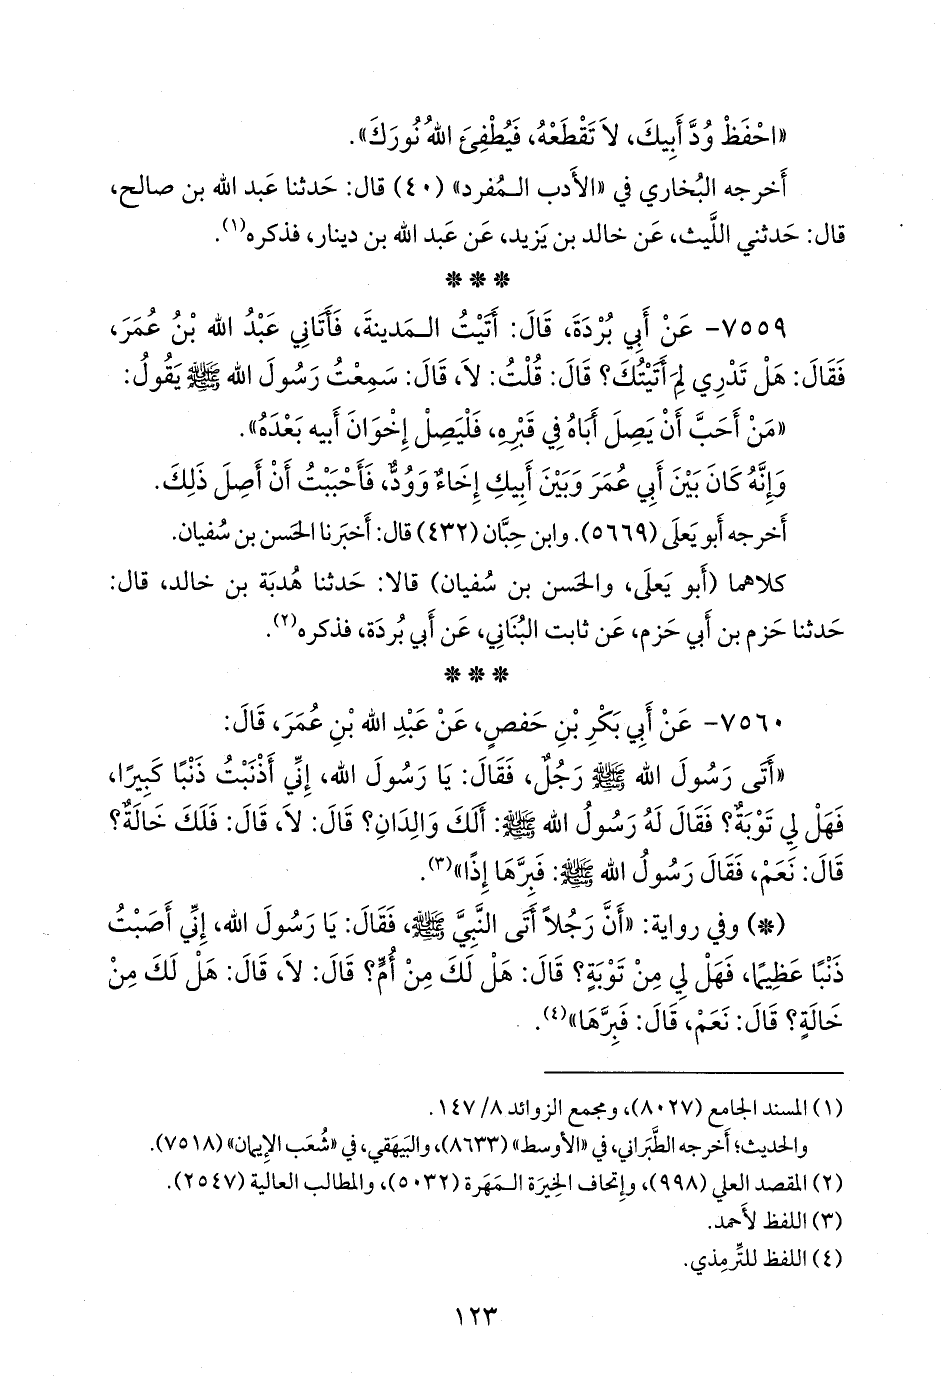 «احْفَظْ وُدَّ أَبِيكَ، لاَ تَقْطَعْهُ، فَيُطْفِئَ اللهُ نُورَكَ».
أَخرجه البُخاري في «الأَدب الـمُفرد» (٤٠) قال: حَدثنا عَبد الله بن صالح،
قال: حَدثني اللَّيث، عَن خالد بن يَزيد، عَن عَبد الله بن دينار، فذكره(١).
***
٧٥٥٩- عَنْ أَبِي بُرْدَةَ، قَالَ: أَتَيْتُ الـمَدينةَ، فَأَتَانِي عَبْدُ الله بْنُ عُمَرَ،
فَقَالَ: هَلْ تَدْرِي لِمَ أَتَيْتُكَ؟ قَالَ: قُلْتُ: لاَ، قَالَ: سَمِعْتُ رَسُولَ الله ﷺ يَقُولُ:
«مَنْ أَحَبَّ أَنْ يَصِلَ أَبَاهُ فِي قَبْرِهِ، فَلْيَصِلْ إِخْوَانَ أَبيه بَعْدَهُ».
وَإِنَّهُ كَانَ بَيْنَ أَبِي عُمَرَ وَبَيْنَ أَبِيكِ إِخَاءٌ وَوُدٌّ، فَأَحْبَبْتُ أَنْ أَصِلَ ذَلِكَ.
أَخرجه أَبو يَعلَى (٥٦٦٩). وابن حِبَّان (٤٣٢) قال: أَخبَرنا الحَسن بن سُفيان.
كلاهما (أَبو يَعلَى، والحَسن بن سُفيان) قالا: حَدثنا هُدبَة بن خالد، قال:
حَدثنا حَزم بن أَبي حَزم، عَن ثابت البُنَاني، عَن أَبي بُردَة، فذكره(٢).
***
٧٥٦٠- عَنْ أَبِي بَكْرِ بْنِ حَفصٍ، عَنْ عَبْدِ الله بْنِ عُمَرَ، قَالَ:
«أَتَى رَسُولَ الله ﷺ رَجُلٌ، فَقَالَ: يَا رَسُولَ الله، إِنِّي أَذْنَبْتُ ذَنْبًا كَبِيرًا،
فَهَلْ لِي تَوْبَةٌ؟ فَقَالَ لَهُ رَسُولُ الله ﷺ: أَلَكَ وَالِدَانِ؟ قَالَ: لاَ، قَالَ: فَلَكَ خَالَةٌ؟
قَالَ: نَعَمْ، فَقَالَ رَسُولُ الله ﷺ: فَبِرَّهَا إِذًا»(٣).
(*) وفي رواية: «أَنَّ رَجُلاً أَتَى النَّبِيَّ ﷺ، فَقَالَ: يَا رَسُولَ الله، إِنِّي أَصَبْتُ
ذَنْبًا عَظِيمًا، فَهَلْ لِي مِنْ تَوْبَةٍ؟ قَالَ: هَلْ لَكَ مِنْ أُمٍّ؟ قَالَ: لاَ، قَالَ: هَلْ لَكَ مِنْ
خَالَةٍ؟ قَالَ: نَعَمْ، قَالَ: فَبِرَّهَا»(٤).
(١) المسند الجامع (٨٠٢٧)، ومجمع الزوائد ٨/ ١٤٧.
والحديث؛ أَخرجه الطَّبَراني، في «الأَوسط» (٨٦٣٣)، والبَيهَقي، في «شُعَب الإِيمان» (٧٥١٨).
(٢) المقصد العلي (٩٩٨)، وإتحاف الخِيرَة الـمَهَرة (٥٠٣٢)، والمطالب العالية (٢٥٤٧).
(٣) اللفظ لأَحمد.
(٤) اللفظ للتِّرمِذي.
١٢٣